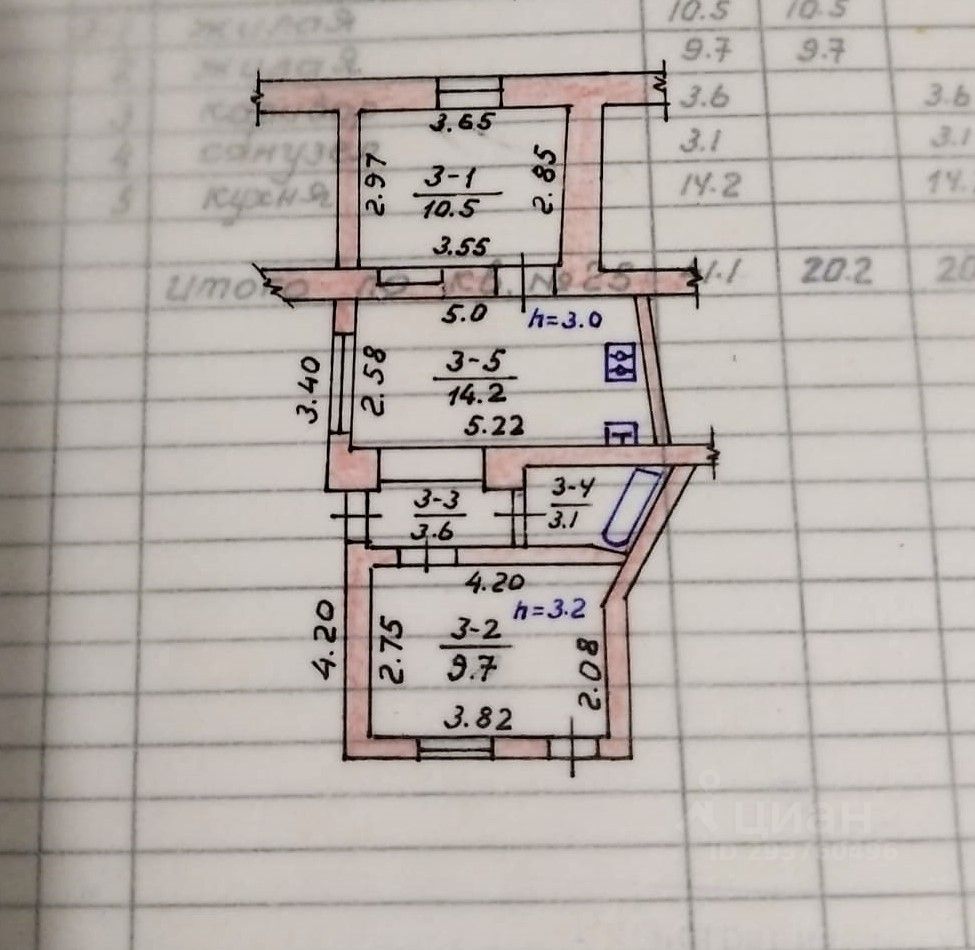 1 жилая 10.5 10.5
2 жилая 9.7 9.7
3 3.6 3.6
4 санузел 3.1 3.1
5 кухня 14.2 14.
итого по кв. №25 41.1 20.2 20
3.65
2.97
2.85
3-1
10.5
3.55
5.0
h=3.0
3.40
2.58
3-5
14.2
5.22
3-3
3.6
3-4
3.1
4.20
h=3.2
4.20
2.75
3-2
9.7
2.08
3.82
циан